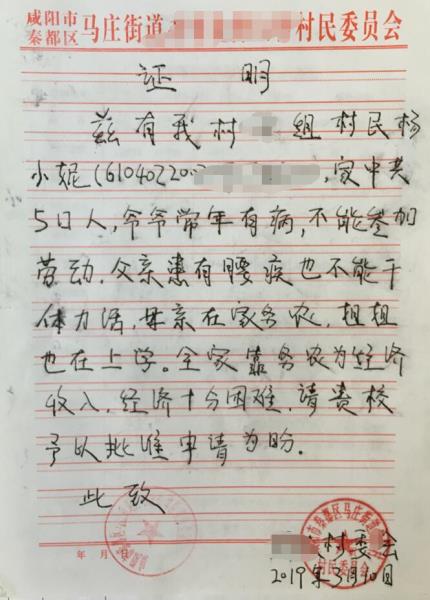 咸阳市
秦都区 马庄街道 村民委员会
证 明
兹有我村 组村民杨
小妮(610402200 ,家中共
5口人,爷爷常年有病,不能参加
劳动,父亲患有腰疾也不能干
体力活,母亲在家务农,姐姐
也在上学。全家靠务农为经济
收入,经济十分困难,请贵校
予以批准申请为盼。
此致
村委会
年 月 日
2019年3月10日